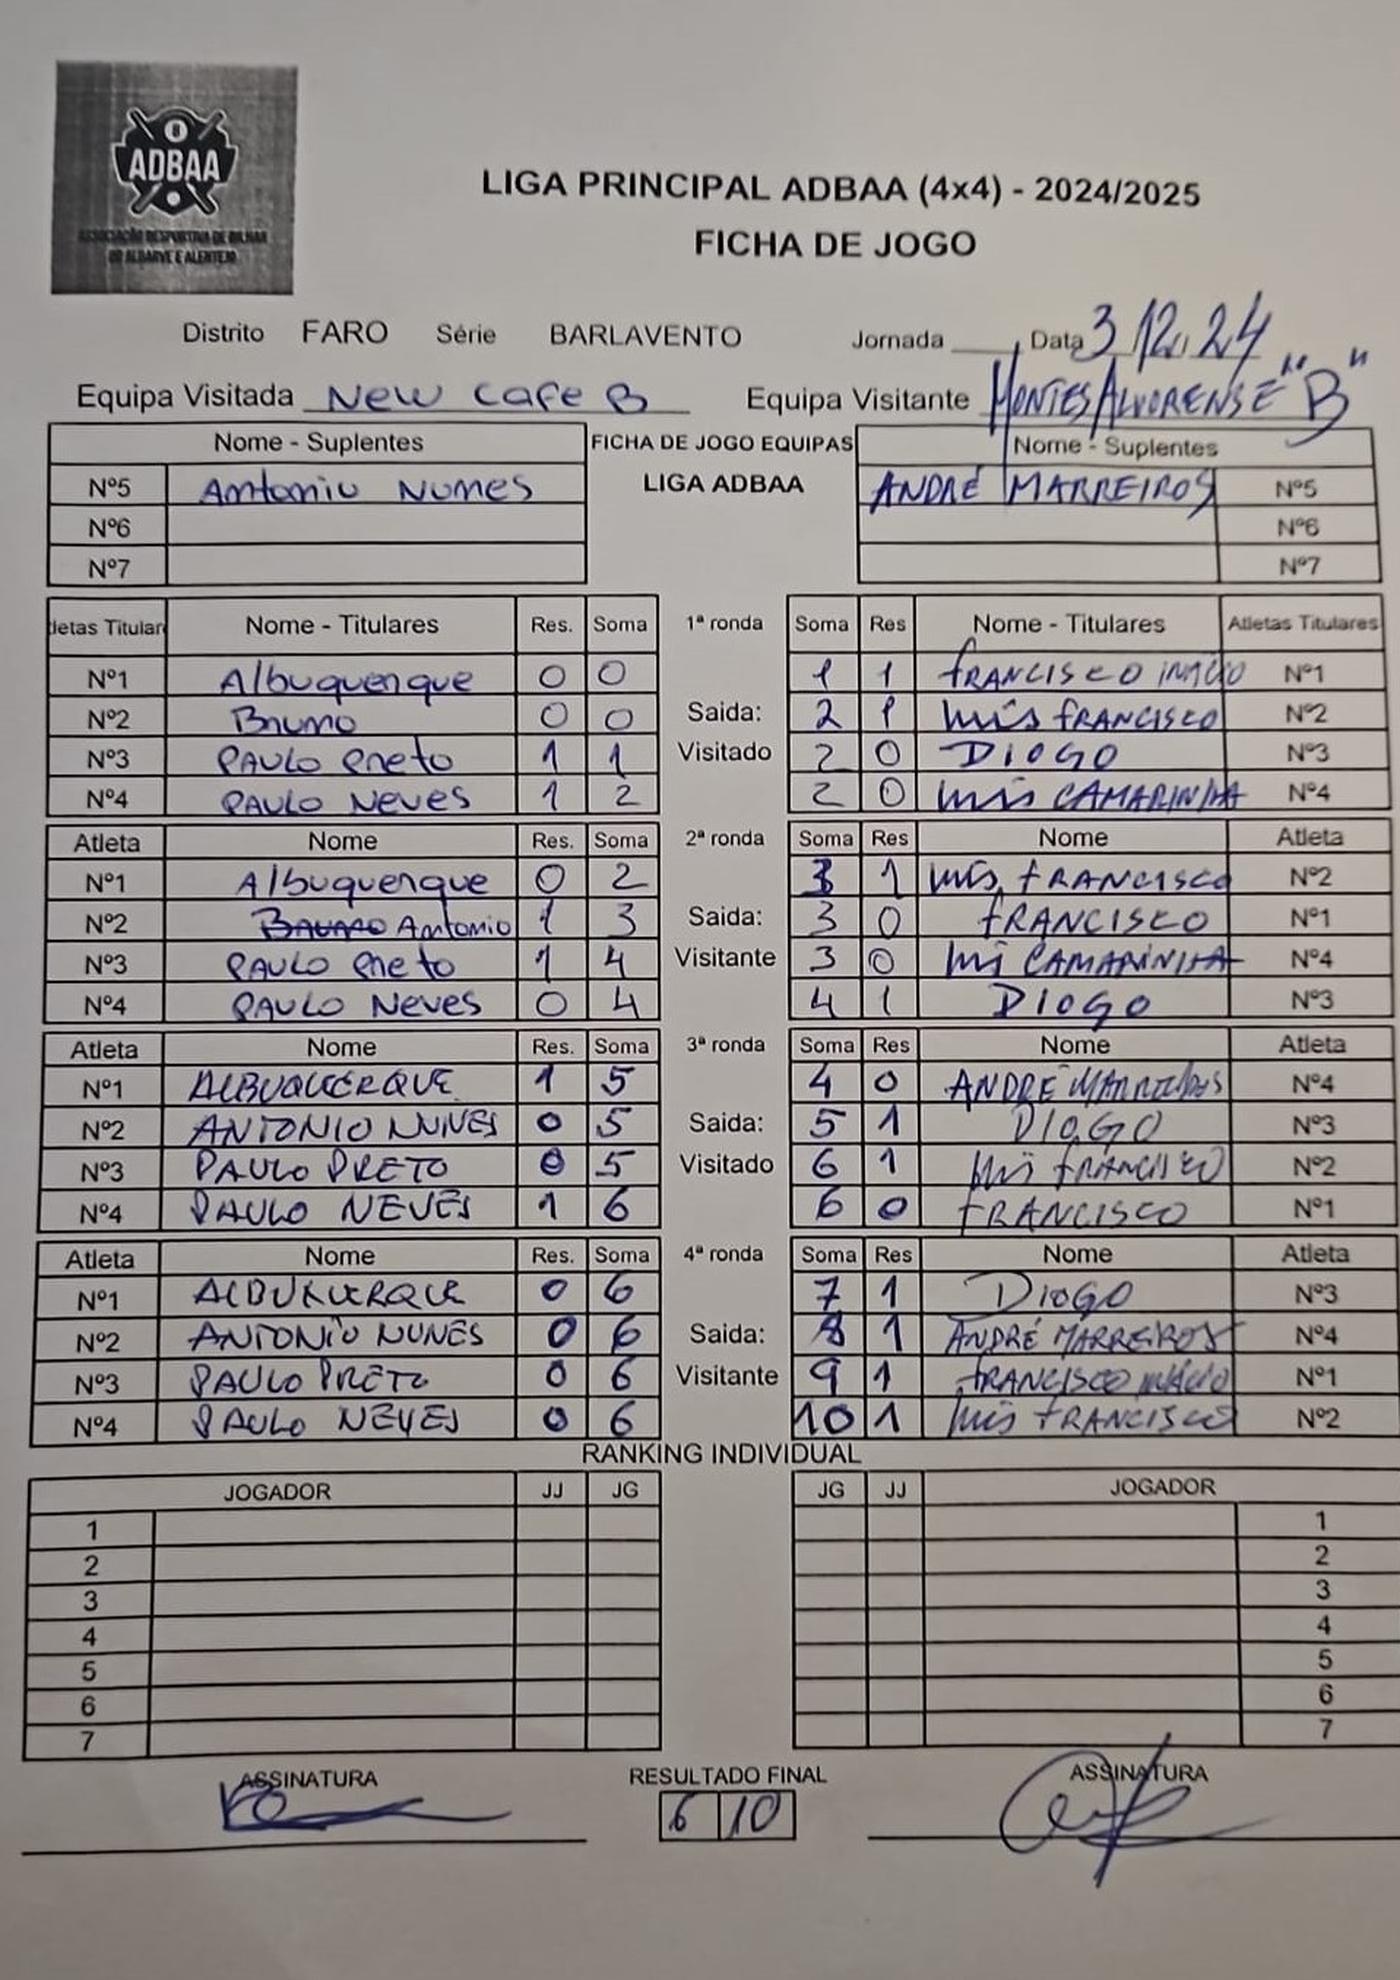 ADBAA
ASSOCIAÇÃO DESPORTIVA DE BILHAR
DO ALGARVE E ALENTEJO
LIGA PRINCIPAL ADBAA (4x4) - 2024/2025
FICHA DE JOGO
Distrito FARO Série BARLAVENTO Jornada ____ Data 3/12/24
Equipa Visitada New Cafe B Equipa Visitante MONTES ALVORENSE "B"
Nome - Suplentes FICHA DE JOGO EQUIPAS Nome - Suplentes
Nº5 Antonio Nunes LIGA ADBAA ANDRÉ MARREIROS Nº5
Nº6 Nº6
Nº7 Nº7
letas Titular Nome - Titulares Res. Soma 1ª ronda Soma Res Nome - Titulares Atletas Titulares
Nº1 Albuquerque 0 0 1 1 FRANCISCO INÁCIO Nº1
Nº2 Bruno 0 0 Saida: 2 1 Luís FRANCISCO Nº2
Nº3 PAULO Preto 1 1 Visitado 2 0 DIOGO Nº3
Nº4 PAULO Neves 1 2 2 0 Luís CAMARINHA Nº4
Atleta Nome Res. Soma 2ª ronda Soma Res Nome Atleta
Nº1 Albuquerque 0 2 3 1 Luís FRANCISCO Nº2
Nº2 Bruno Antonio 1 3 Saida: 3 0 FRANCISCO Nº1
Nº3 PAULO Preto 1 4 Visitante 3 0 Luí CAMARINHA Nº4
Nº4 PAULO Neves 0 4 4 1 DIOGO Nº3
Atleta Nome Res. Soma 3ª ronda Soma Res Nome Atleta
Nº1 ALBUQUERQUE 1 5 4 0 ANDRÉ MARREIROS Nº4
Nº2 ANTONIO NUNES 0 5 Saida: 5 1 DIOGO Nº3
Nº3 PAULO PRETO 0 5 Visitado 6 1 Luís FRANCISCO Nº2
Nº4 PAULO NEVES 1 6 6 0 FRANCISCO Nº1
Atleta Nome Res. Soma 4ª ronda Soma Res Nome Atleta
Nº1 ALBUKUERQUE 0 6 7 1 DIOGO Nº3
Nº2 ANTONIO NUNES 0 6 Saida: 8 1 ANDRÉ MARREIROS Nº4
Nº3 PAULO PRETO 0 6 Visitante 9 1 FRANCISCO INÁCIO Nº1
Nº4 PAULO NEVES 0 6 10 1 Luís FRANCISCO Nº2
RANKING INDIVIDUAL
JOGADOR JJ JG JG JJ JOGADOR
1 1
2 2
3 3
4 4
5 5
6 6
7 7
ASSINATURA RESULTADO FINAL ASSINATURA
6 10